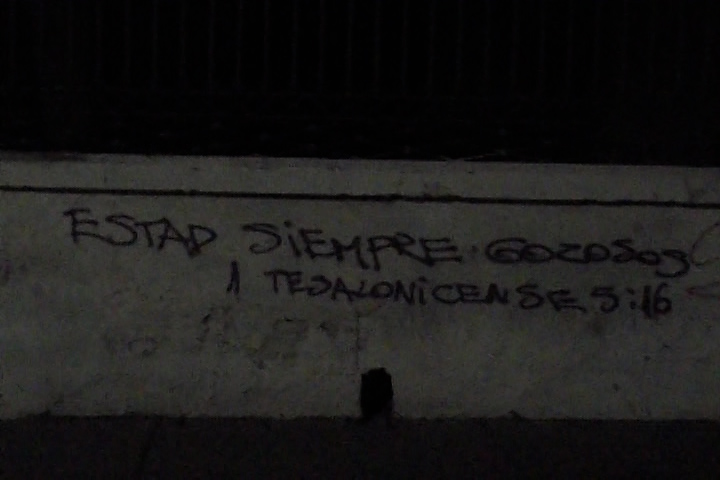 ESTAD SiEMPRE GOZOSOS
1 TESALONiCENSE 5:16